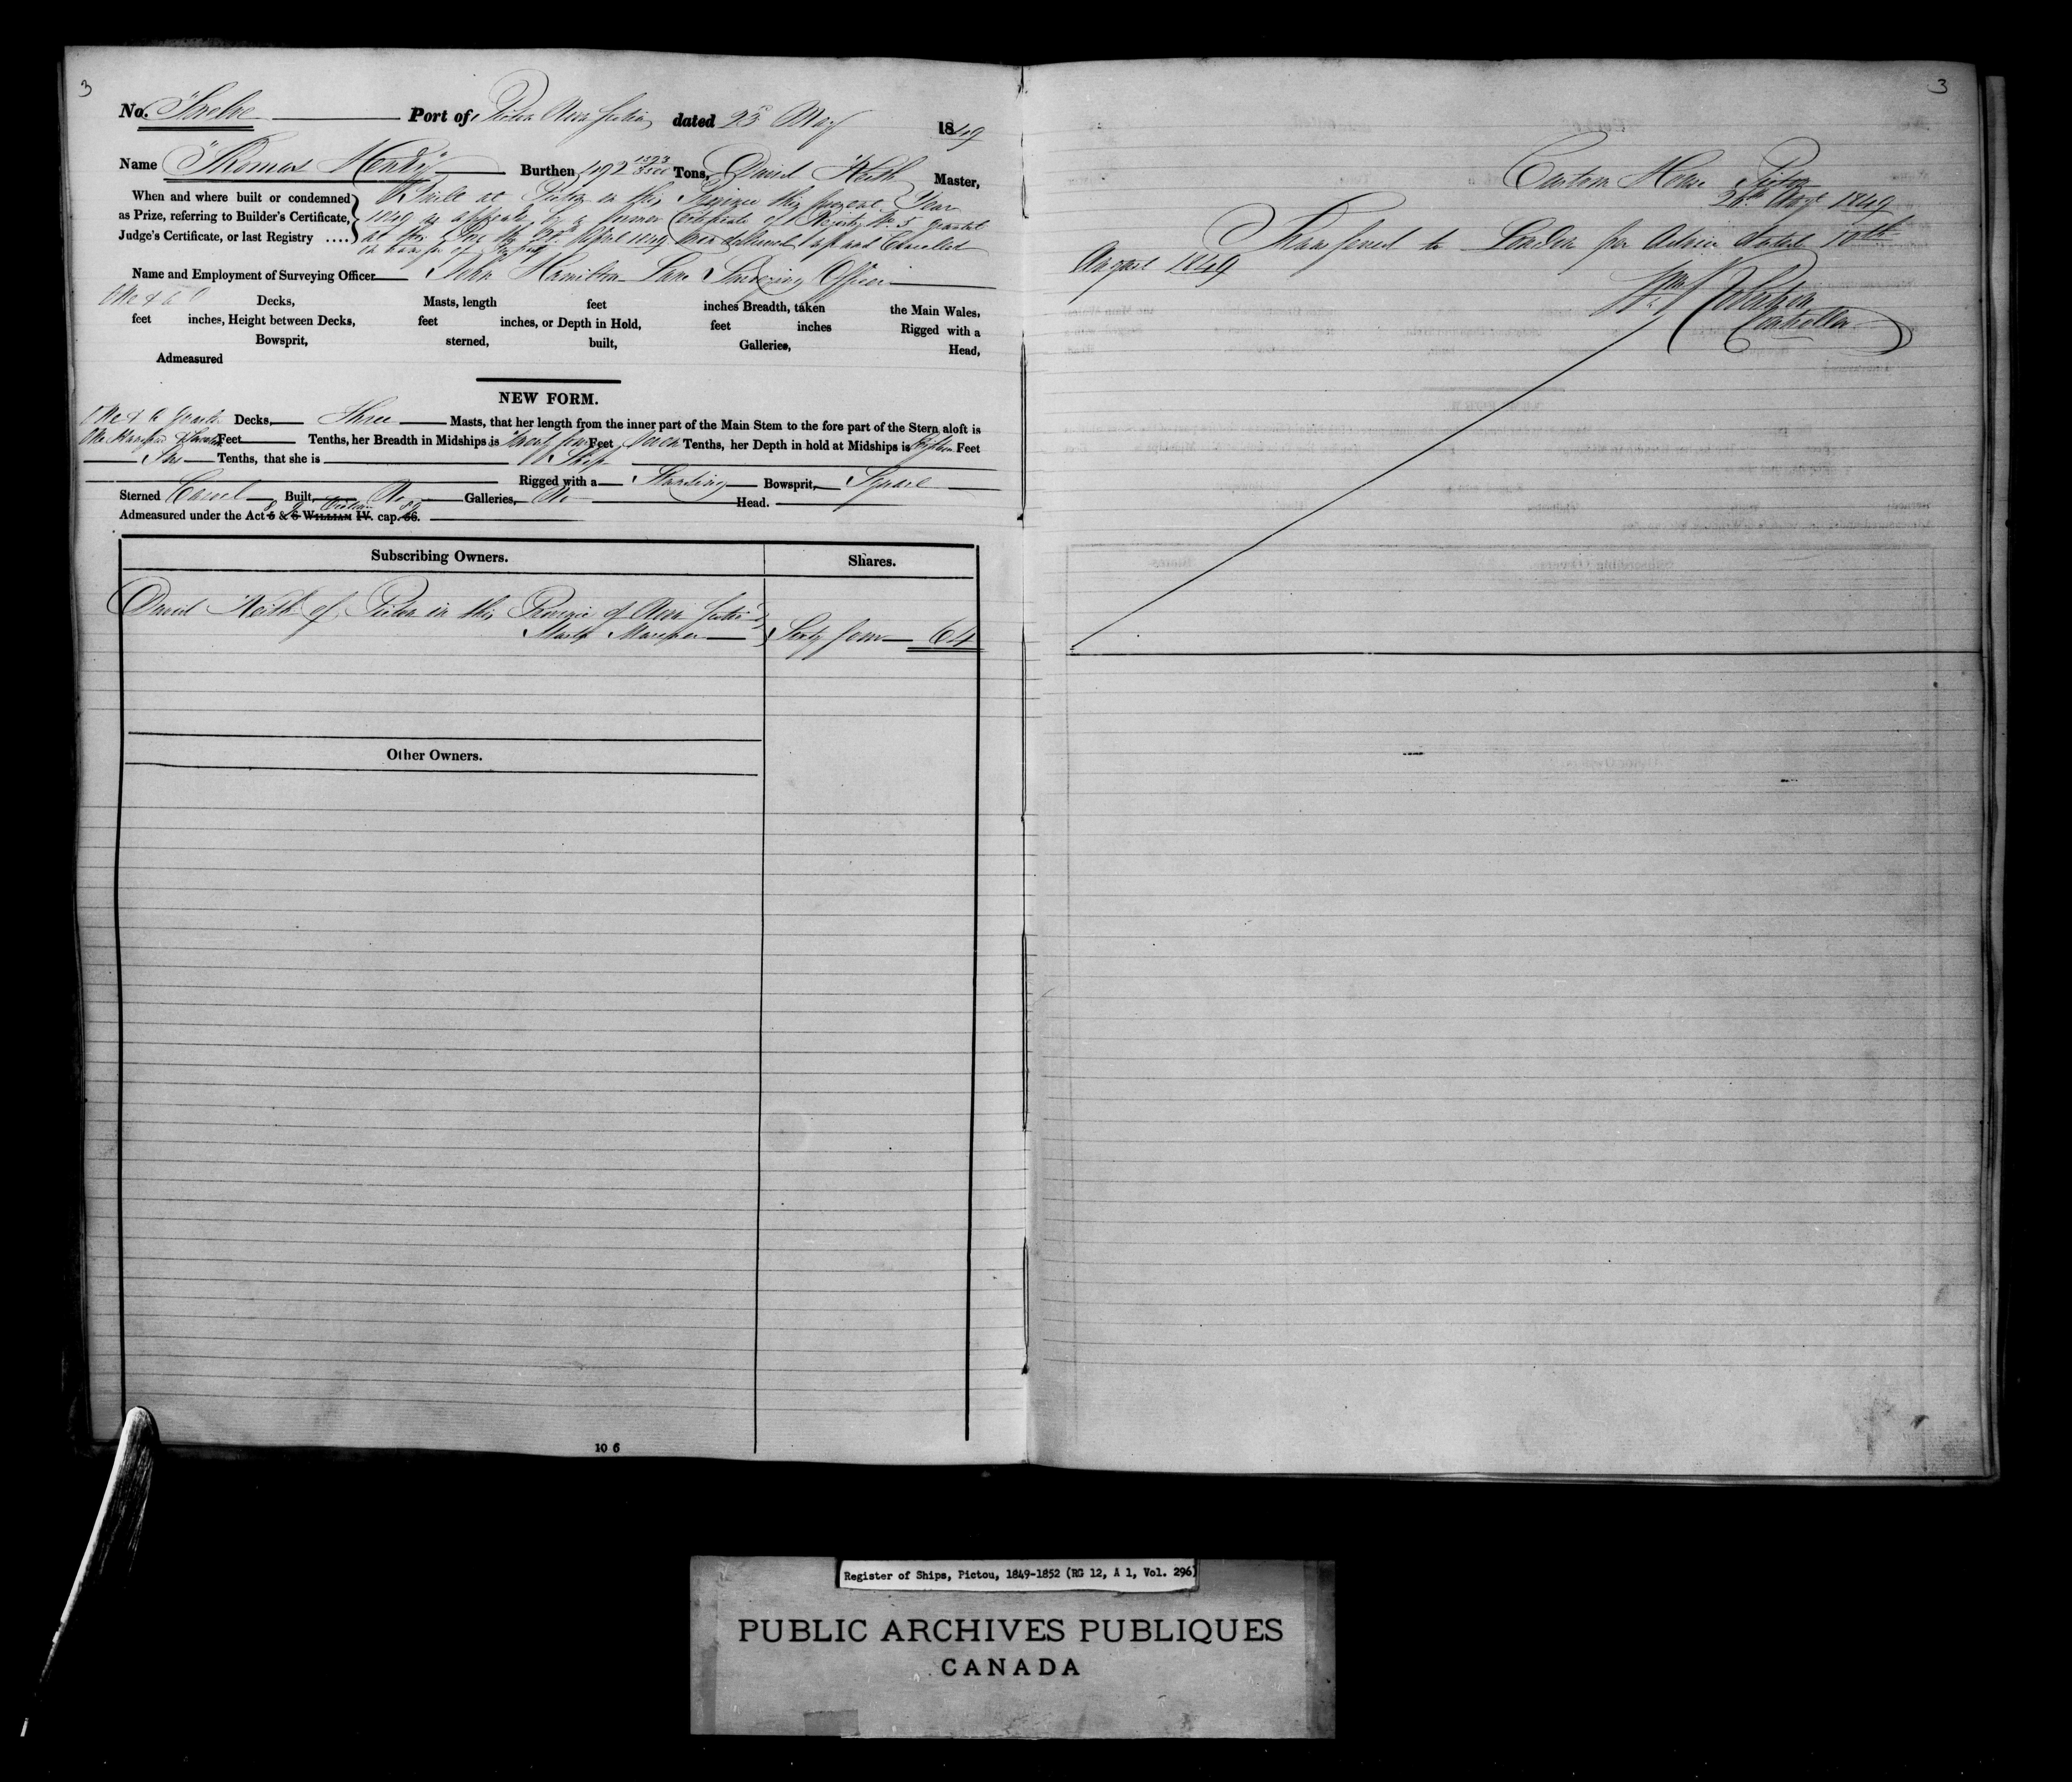 3
No. Twelve Port of Pictou Nova Scotia dated 23d May 1849
Name "Thomas Hendry" Burthen 492 1393/3500 Tons, David Keith Master,
When and where built or condemned as Prize, referring to Builder's Certificate, Judge's Certificate, or last Registry ....
Built at Pictou in this Province this present Year
1849 as appears by a former Certificate of Registry No. 5 granted
at this Port the April 1849 now delivered up and Cancelled
on transfer of Property
Name and Employment of Surveying Officer John Hamilton Lane Surveying Officer
One & a Decks, Masts, length feet inches Breadth, taken the Main Wales,
feet inches, Height between Decks, feet inches, or Depth in Hold, feet inches Rigged with a
Bowsprit, sterned, built, Galleries, Head,
Admeasured
NEW FORM.
One & a Decks, Three Masts, that her length from the inner part of the Main Stem to the fore part of the Stern aloft is
One Hundred & Feet Tenths, her Breadth in Midships is Twenty four Feet Seven Tenths, her Depth in hold at Midships is Feet
Tenths, that she is Ship
Rigged with a Standing Bowsprit, Square
Sterned Carvel Built, No Galleries, No Head.
Admeasured under the Act 5 & 6 WILLIAM IV. cap. 56. 8 & 9 Victoria 89
Subscribing Owners. Shares.
David Keith of Pictou in this Province of Nova Scotia
Master Mariner Sixty four 64
Other Owners.
10 6
3
Custom House Pictou
1849
Transferred to London per Advice dated 10th
August 1849
Wm Robertson
Controller
Register of Ships, Pictou, 1849-1852 (RG 12, A 1, Vol. 296)
PUBLIC ARCHIVES PUBLIQUES
CANADA